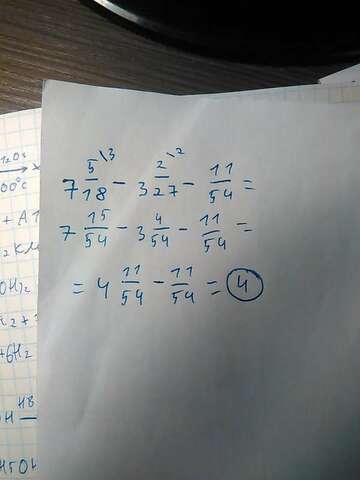 7 5/18 \3 - 3 2/27 \2 - 11/54 =
7 15/54 - 3 4/54 - 11/54 =
= 4 11/54 - 11/54 = 4
00°C
+ A1
OH)2
+6H2
H8
H5OH